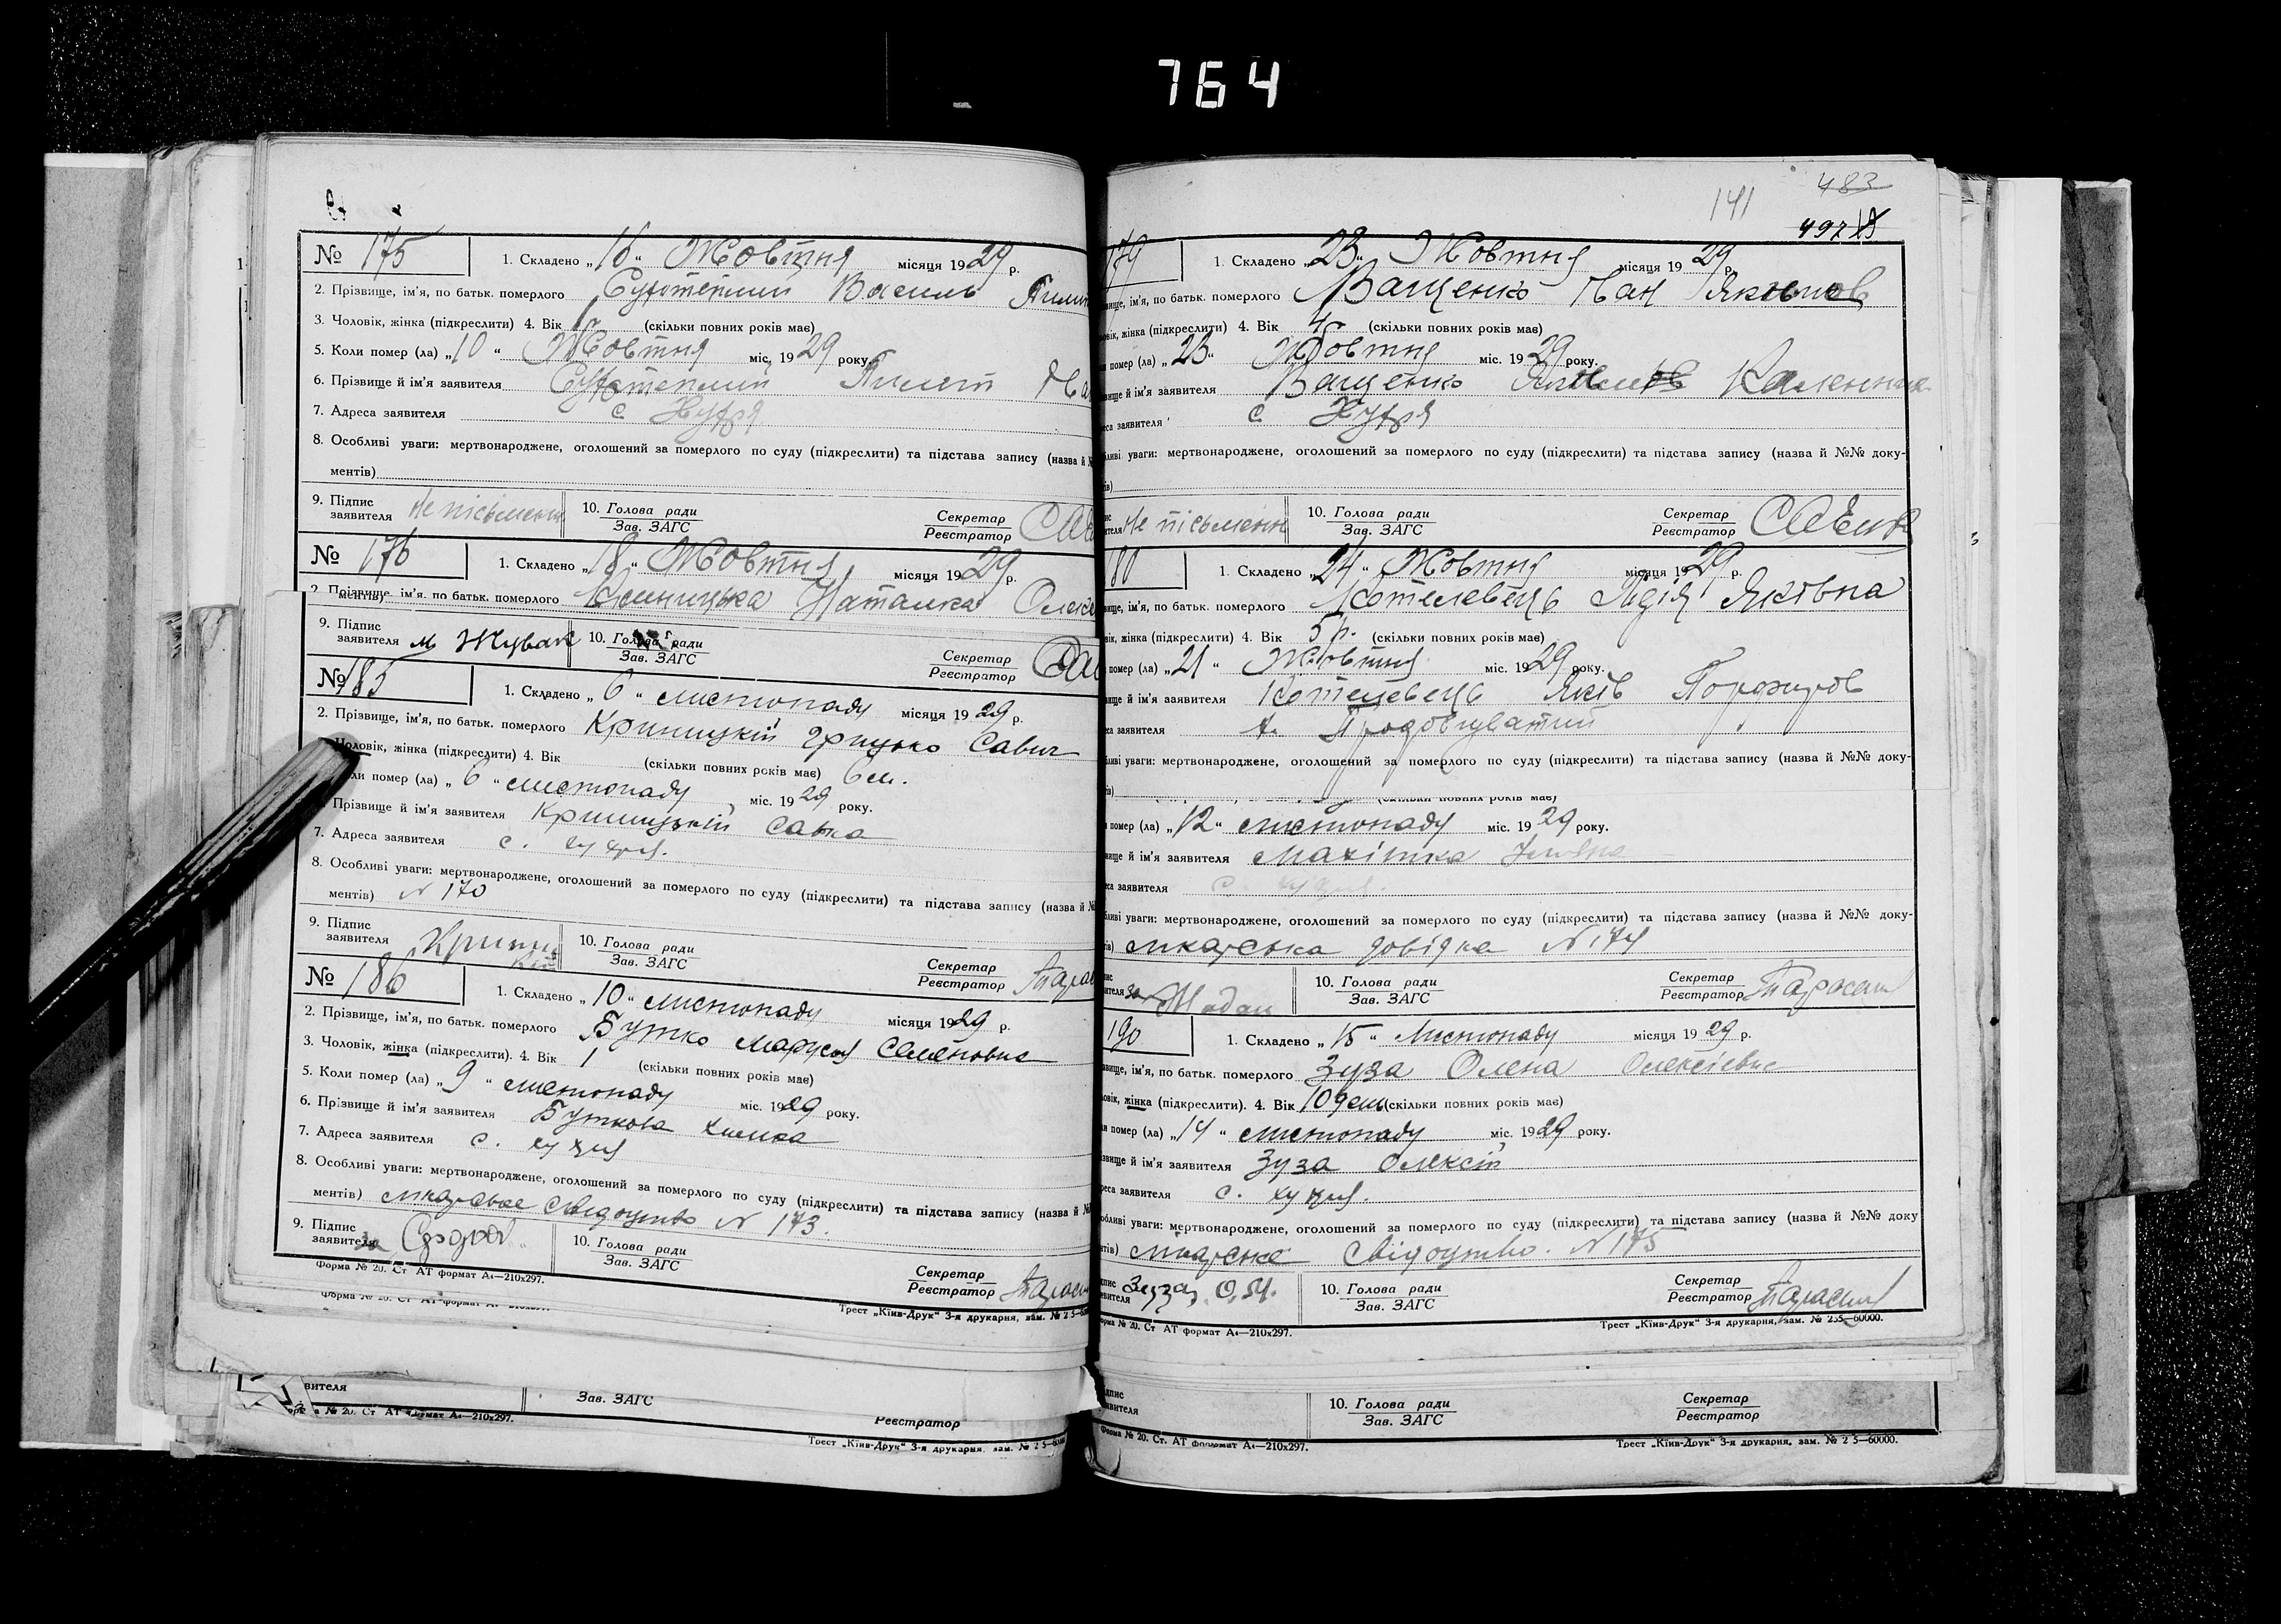 764
№ 175 1. Складено „16“ Жовтня місяця 1929 р.
2. Прізвище, ім'я, по батьк. померлого Василь
3. Чоловік, жінка (підкреслити) 4. Вік (скільки повних років має)
5. Коли помер (ла) „10“ Жовтня міс. 1929 року.
6. Прізвище й ім'я заявителя
7. Адреса заявителя с Хутря
8. Особливі уваги: мертвонароджене, оголошений за померлого по суду (підкреслити) та підстава запису (назва й
ментів)
9. Підпис заявителя Не пісьменн 10. Голова ради Зав. ЗАГС Секретар Реєстратор
№ 176 1. Складено „18“ Жовтня місяця 1929 р.
2. Прізвище, ім'я, по батьк. померлого Наталка
ментів)
9. Підпис заявителя М Жувак 10. Голова ради Зав. ЗАГС Секретар Реєстратор
№ 185 1. Складено „6“ листопаду місяця 1929 р.
2. Прізвище, ім'я, по батьк. померлого Криницкій Грицько Савич
Чоловік, жінка (підкреслити) 4. Вік (скільки повних років має) 6 м.
ли помер (ла) „6“ листопаду міс. 1929 року.
Прізвище й ім'я заявителя Криницькій Савка
7. Адреса заявителя с.
8. Особливі уваги: мертвонароджене, оголошений за померлого по суду (підкреслити) та підстава запису (назва й №
ментів) N 170
9. Підпис заявителя Крини кій 10. Голова ради Зав. ЗАГС Секретар Реєстратор
№ 186 1. Складено „10“ листопаду місяця 1929 р.
2. Прізвище, ім'я, по батьк. померлого Бутко Маруся Семеновна
3. Чоловік, жінка (підкреслити). 4. Вік 1 (скільки повних років має)
5. Коли помер (ла) „9“ листопаду міс. 1929 року.
6. Прізвище й ім'я заявителя Буткова Химка
7. Адреса заявителя с.
8. Особливі уваги: мертвонароджене, оголошений за померлого по суду (підкреслити) та підстава запису (назва й №
ментів) лікарське свідоцтво N 173.
9. Підпис заявителя за 10. Голова ради Зав. ЗАГС Секретар Реєстратор
Форма № 20. Ст АТ формат А4—210х297.
Трест „Київ-Друк“ 3-я друкарня, зам. № 2 5—
вителя Зав. ЗАГС Реєстратор
Ст АТ формат А4—210х297.
Трест „Київ-Друк“ 3-я друкарня, зам. № 2 5—
141 483
497
179 1. Складено „23“ Жовтня місяця 1929 р.
вище, ім'я, по батьк. померлого Ващенко Іван Яковлов
вік, жінка (підкреслити) 4. Вік 4р (скільки повних років має)
помер (ла) „23“ Жовтня міс. 1929 року.
вище й ім'я заявителя Ващенко
еса заявителя с Хутря
ливі уваги: мертвонароджене, оголошений за померлого по суду (підкреслити) та підстава запису (назва й №№ доку-
ів)
Не пісьменн 10. Голова ради Зав. ЗАГС Секретар Реєстратор
180 1. Складено „24“ Жовтня місяця 1929 р.
вище, ім'я, по батьк. померлого Котелевець Лідія Яківна
вік, жінка (підкреслити) 4. Вік 5 р. (скільки повних років має)
помер (ла) „21“ Жовтня міс. 1929 року.
вище й ім'я заявителя Котелевець Яків Порфиров
са заявителя х. Продовгуватий
ливі уваги: мертвонароджене, оголошений за померлого по суду (підкреслити) та підстава запису (назва й №№ доку-
ів)
помер (ла) „12“ листопаду міс. 1929 року.
вище й ім'я заявителя Махітка
са заявителя с.
бливі уваги: мертвонароджене, оголошений за померлого по суду (підкреслити) та підстава запису (назва й №№ доку-
ів) лікарська довідка N 174
10. Голова ради Зав. ЗАГС Секретар Реєстратор
190 1. Складено „15“ Листопаду місяця 1929 р.
вище, ім'я, по батьк. померлого Зуза Олена Олексієвна
овік, жінка (підкреслити). 4. Вік 10 ден (скільки повних років має)
помер (ла) „14“ листопаду міс. 1929 року.
звище й ім'я заявителя Зуза Олексій
реса заявителя с.
обливі уваги: мертвонароджене, оголошений за померлого по суду (підкреслити) та підстава запису (назва й №№ доку
нтів) лікарське свідоцтво. N 175
Зуза 10. Голова ради Зав. ЗАГС Секретар Реєстратор
орма № 20. Ст АТ формат А4—210х297.
Трест „Київ-Друк“ 3-я друкарня, зам. № 235—60000.
10. Голова ради Зав. ЗАГС Секретар Реєстратор
Форма № 20. Ст. АТ формат А4—210х297.
Трест „Київ-Друк“ 3-я друкарня, зам. № 2 5—60000.